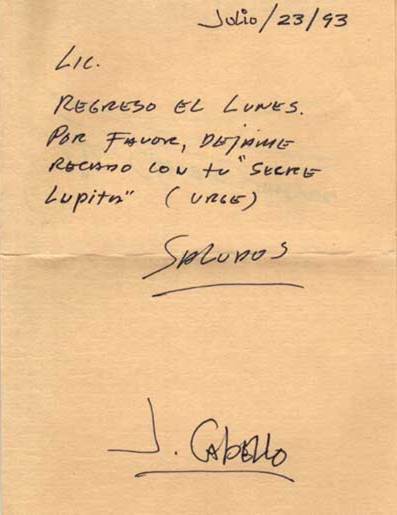 Julio/23/93
Lic.
REGRESO EL LUNES.
POR FAVOR, DEJAME
RECADO CON tu "SECRE
Lupita" (URGE)
SALUDOS
J. CABELLO